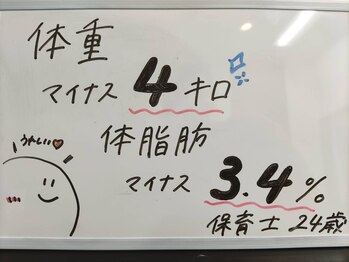 体重
マイナス 4キロ
体脂肪
マイナス 3.4%
保育士 24歳
うれしい♥